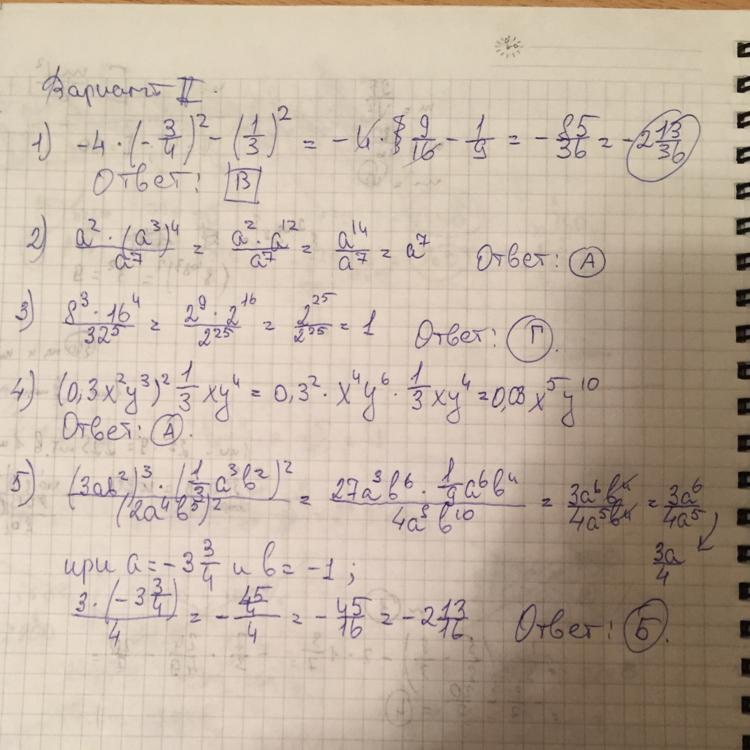 Вариант II.
1) -4 · (-3/4)² - (1/3)² = -4 · 9/16 - 1/9 = -85/36 = -2 13/36
Ответ: В
2) a² · (a³)⁴ / a⁷ = a² · a¹² / a⁷ = a¹⁴ / a⁷ = a⁷ Ответ: А
3) 8³ · 16⁴ / 32⁵ = 2⁹ · 2¹⁶ / 2²⁵ = 2²⁵ / 2²⁵ = 1 Ответ: Г.
4) (0,3x²y³)² · 1/3 xy⁴ = 0,3² · x⁴y⁶ · 1/3 xy⁴ = 0,03 x⁵y¹⁰
Ответ: А.
5) (3ab²)³ · (1/3 a³b²)² / (2a⁴b⁵)² = 27a³b⁶ · 1/9 a⁶b⁴ / 4a⁸b¹⁰ = 3a⁶b⁴ / 4a⁵b⁴ = 3a⁶ / 4a⁵
3a/4
при a = -3 3/4 и b = -1;
3 · (-3 3/4) / 4 = - 45/4 / 4 = -45/16 = -2 13/16. Ответ: Б.